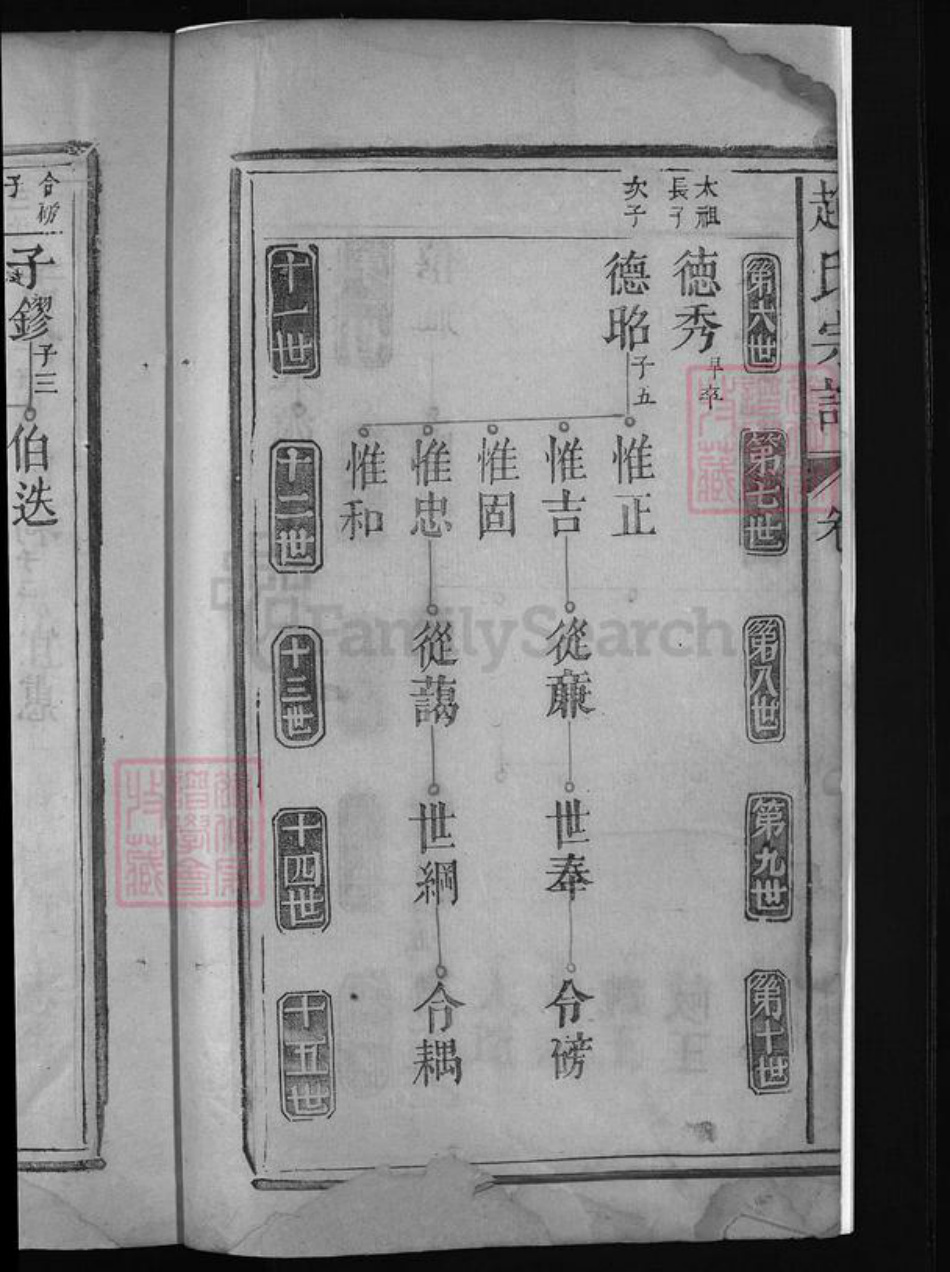 趙氏宗譜 卷
第六世
第七世
第八世
第九世
第十世
太祖
長子
德秀 早卒
次子
德昭 子五
惟正
惟吉
從㢘
世奉
令磅
惟固
惟忠
從藹
世綱
令耦
惟和
十一世
十二世
十三世
十四世
十五世
令磅
子
子鏐 子三
伯迭
FamilySearch